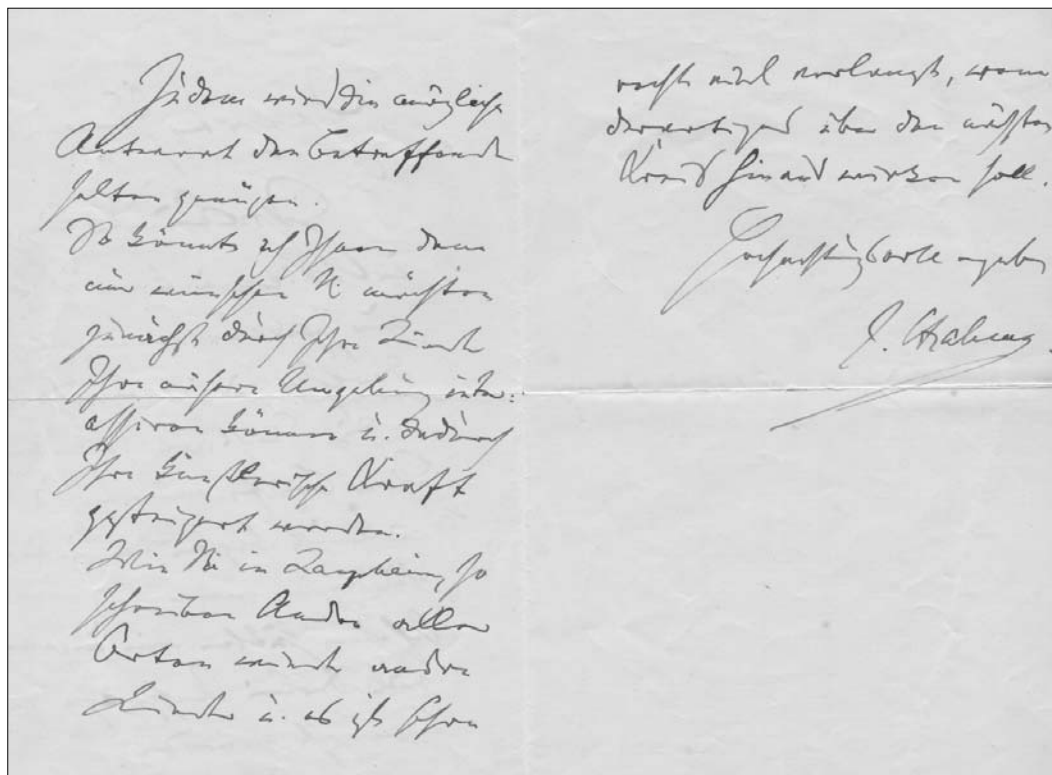 Zudem wird die mögliche
Antwort den Betreffenden
selten genügen.
So könnte ich Ihnen denn
nur wünschen Sie möchten
zunächst durch Ihre Lieder
Ihre nähere Umgebung inte-
essiren können u. dadurch
Ihre künstlerische Kraft
gesteigert werden.
Wie Sie in Laupheim, so
schreiben Andre aller
Orten wieder andre
Lieder u. es ist schon
recht viel verlangt, wenn
derartiges über den nächsten
Kreis hinaus wirken soll.
Hochachtungsvoll ergeben
J. Brahms.